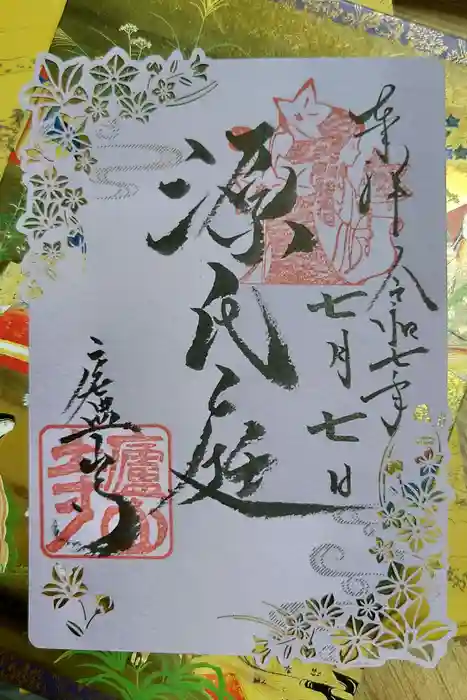 奉拝 令和七年
七月七日
源氏之庭
廬山寺
廬山寺